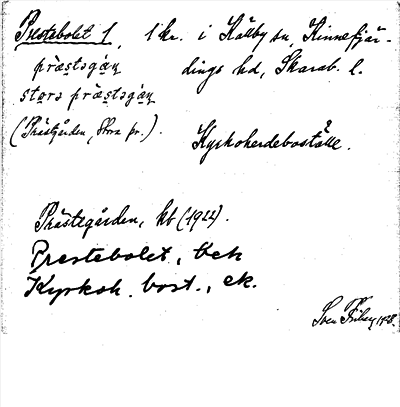 Prestebolet 1, 1 kr. i Källby sn, Kinnefjär-
dings hd, Skarab. l.
præstəgán
stora præstəgán
(Prästgården, Stora pr.).
Kyrkoherdeboställe.
Prästegården, kb (1922).
Prestebolet, bch
Kyrkoh. bost., ek.
Sven Friberg 1928.